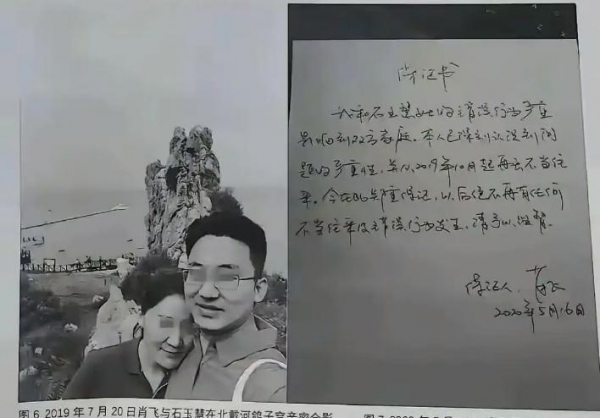 保证书
我和石玉慧女士的错误行为严重
影响到双方家庭。本人已深刻认识到问
题的严重性。并从2019年10月起再无不当往
来。今在此郑重保证，以后绝不再有任何
不当往来及错误行为发生，请予以监督。
保证人：肖飞
2020年5月16日
图 6 2019 年 7 月 20 日肖飞与石玉慧在北戴河鸽子窝亲密合影
图 7